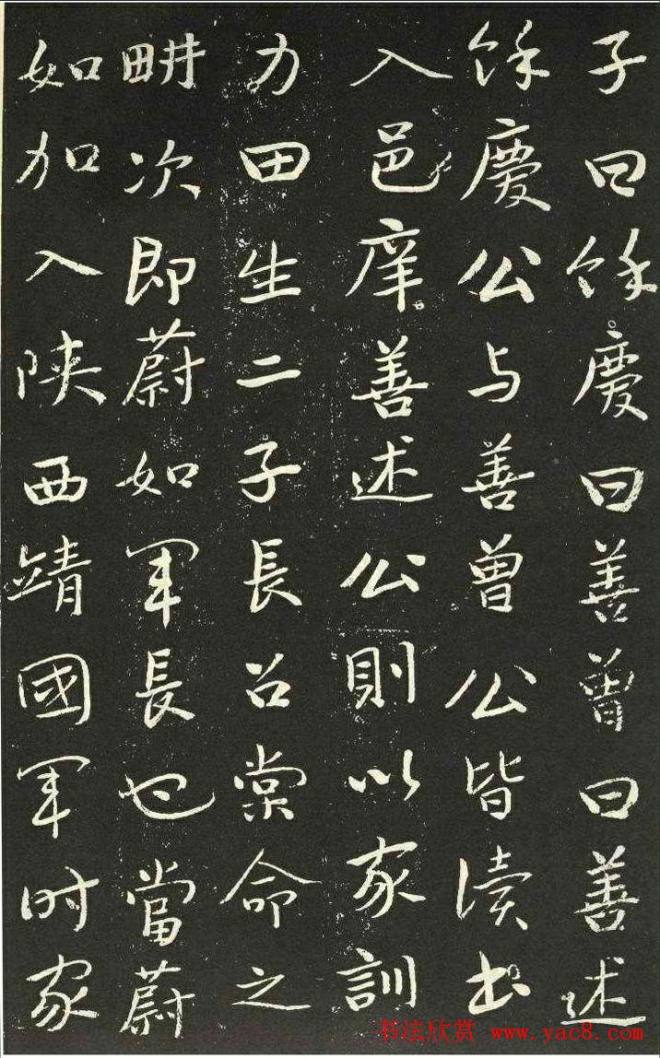 子曰馀慶曰善曾曰善述
馀慶公与善曾公皆读书
入邑庠善述公則以家訓
力田生二子長召棠命之
畊次即蔚如軍長也當蔚
如加入陕西靖國軍时家
书法欣赏 www.yac8.com